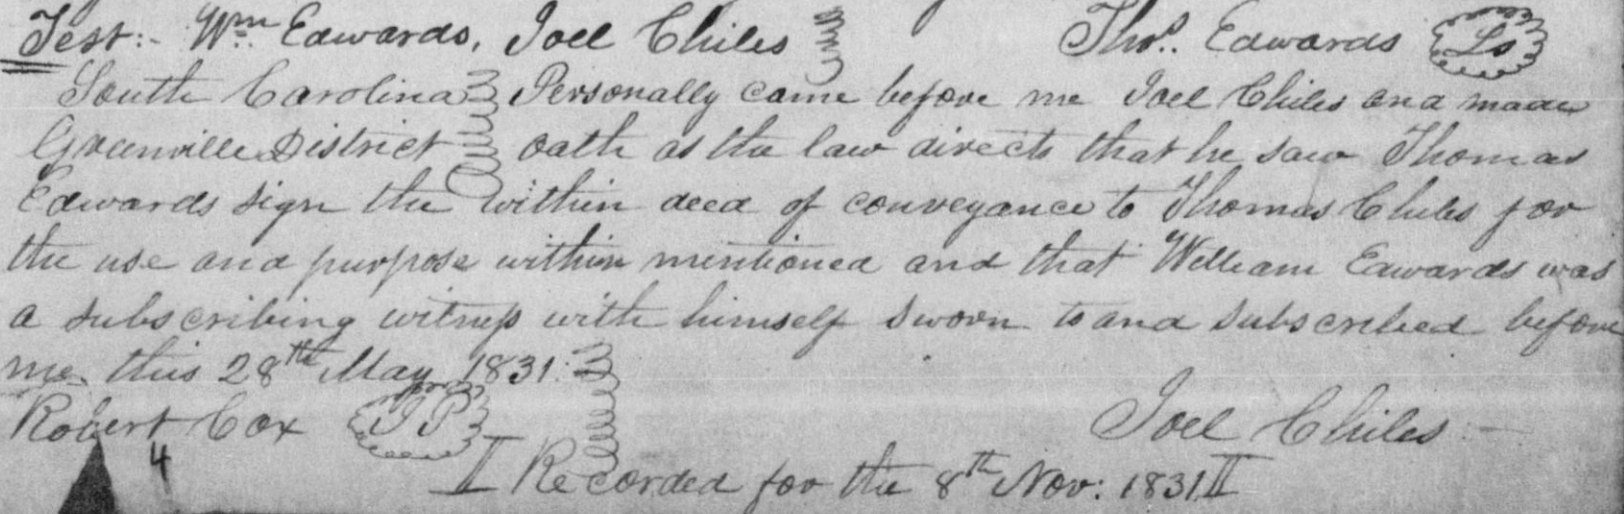 Test:- Wm Edwards, Joel Chiles Thos. Edwards Ls
South Carolina Personally came before me Joel Chiles and made
Greenville District oath as the law directs that he saw Thomas
Edwards sign the within deed of conveyance to Thomas Chiles for
the use and purpose within mentioned and that William Edwards was
a subscribing witness with himself sworn to and subscribed before
me this 28th May 1831:
Robert Cox JP Joel Chiles
Recorded for the 8th Nov: 1831
4